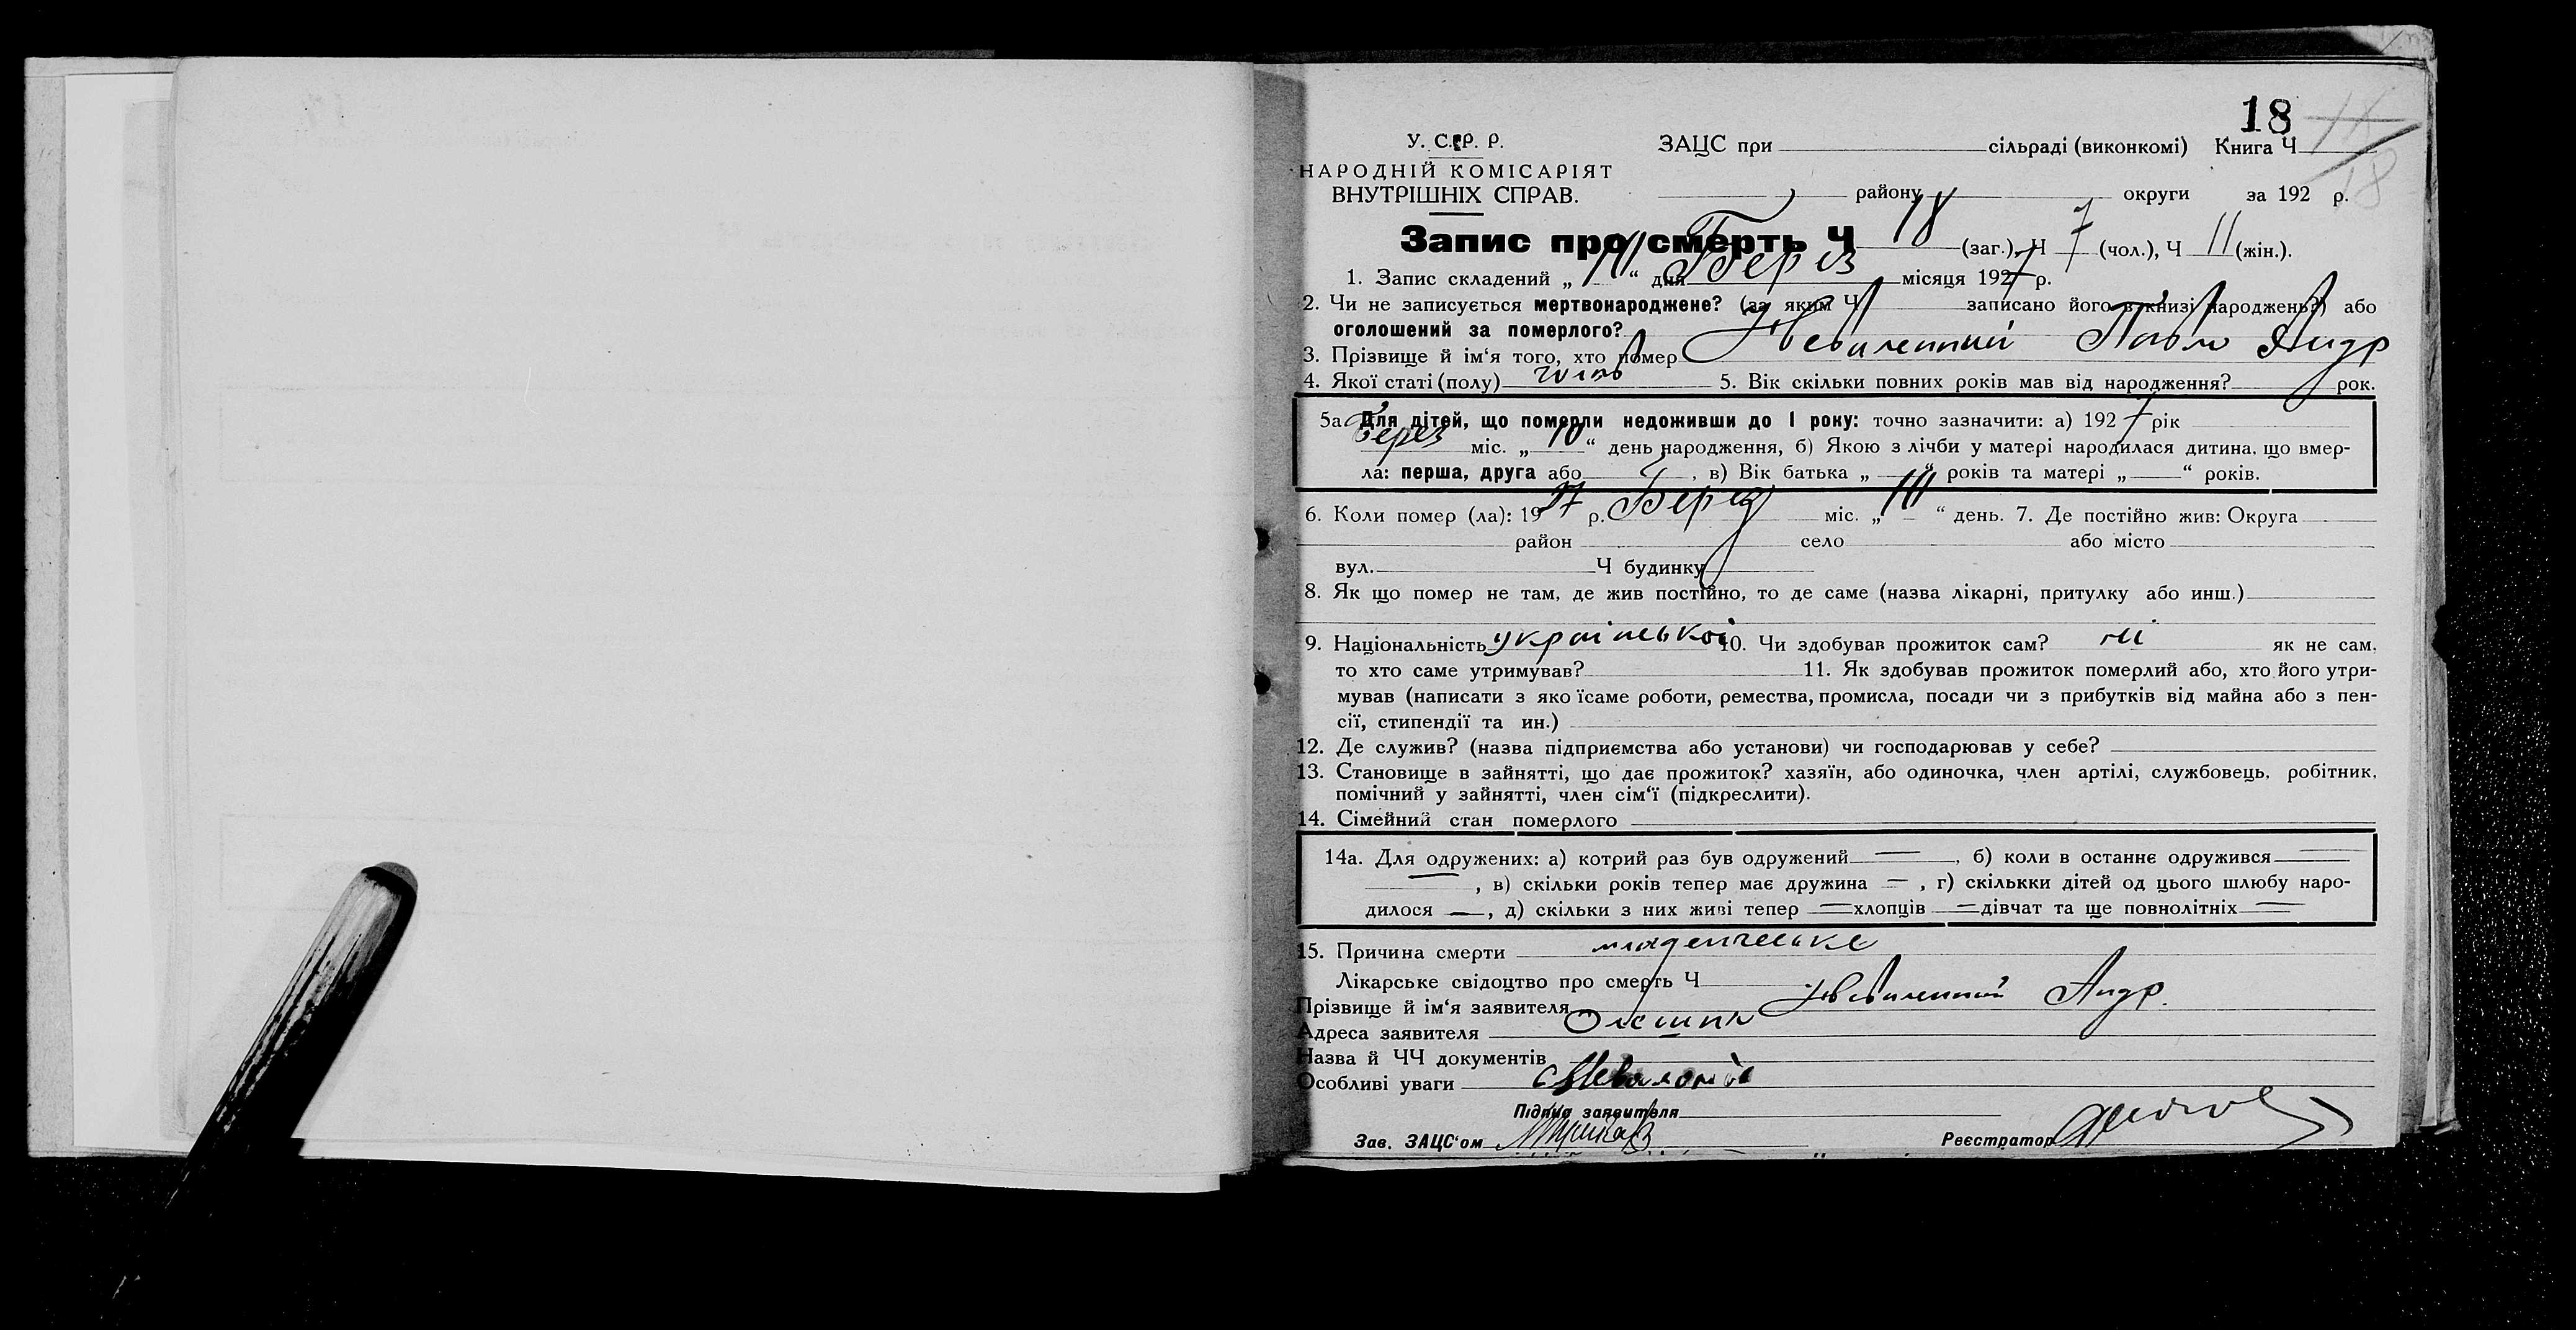 18
У. С. Р. Р. ЗАЦС при сільраді (виконкомі) Книга Ч
18
НАРОДНІЙ КОМІСАРІЯТ
ВНУТРІШНІХ СПРАВ. району округи за 192 р.
Запис про смерть Ч 18 (заг.), Ч 7 (чол.), Ч 11 (жін.).
1. Запис складений „ “ дня Берез місяця 1927 р.
2. Чи не записується мертвонароджене? (за яким Ч записано його в книзі народжень?) або
оголошений за померлого?
3. Прізвище й ім‘я того, хто помер Павло Андр
4. Якої статі (полу) чолов 5. Вік скільки повних років мав від народження? рок.
5а Для дітей, що померли недоживши до 1 року: точно зазначити: а) 1927 рік
Берез міс. „ 10 “ день народження, б) Якою з лічби у матері народилася дитина, що вмер-
ла: перша, друга або 2, в) Вік батька „ “ років та матері „ “ років.
6. Коли помер (ла): 1927 р. Берез міс. „ “ день. 7. Де постійно жив: Округа
район село або місто
вул. Ч будинку
8. Як що помер не там, де жив постійно, то де саме (назва лікарні, притулку або инш.)
9. Національність української 10. Чи здобував прожиток сам? ні як не сам,
то хто саме утримував? 11. Як здобував прожиток померлий або, хто його утри-
мував (написати з яко їсаме роботи, ремества, промисла, посади чи з прибутків від майна або з пен-
сії, стипендії та ин.)
12. Де служив? (назва підприємства або установи) чи господарював у себе?
13. Становище в зайнятті, що дає прожиток? хазяїн, або одиночка, член артілі, службовець, робітник,
помічний у зайнятті, член сім‘ї (підкреслити).
14. Сімейний стан померлого
14а. Для одружених: а) котрий раз був одружений —, б) коли в останнє одружився —
—, в) скільки років тепер має дружина —, г) скількки дітей од цього шлюбу наро-
дилося —, д) скільки з них живі тепер — хлопців — дівчат та ще повнолітніх —
15. Причина смерти младенческе
Лікарське свідоцтво про смерть Ч
Прізвище й ім‘я заявителя Андр.
Адреса заявителя
Назва й ЧЧ документів
Особливі уваги
Підпис заявителя
Зав. ЗАЦС‘ом Реєстратор